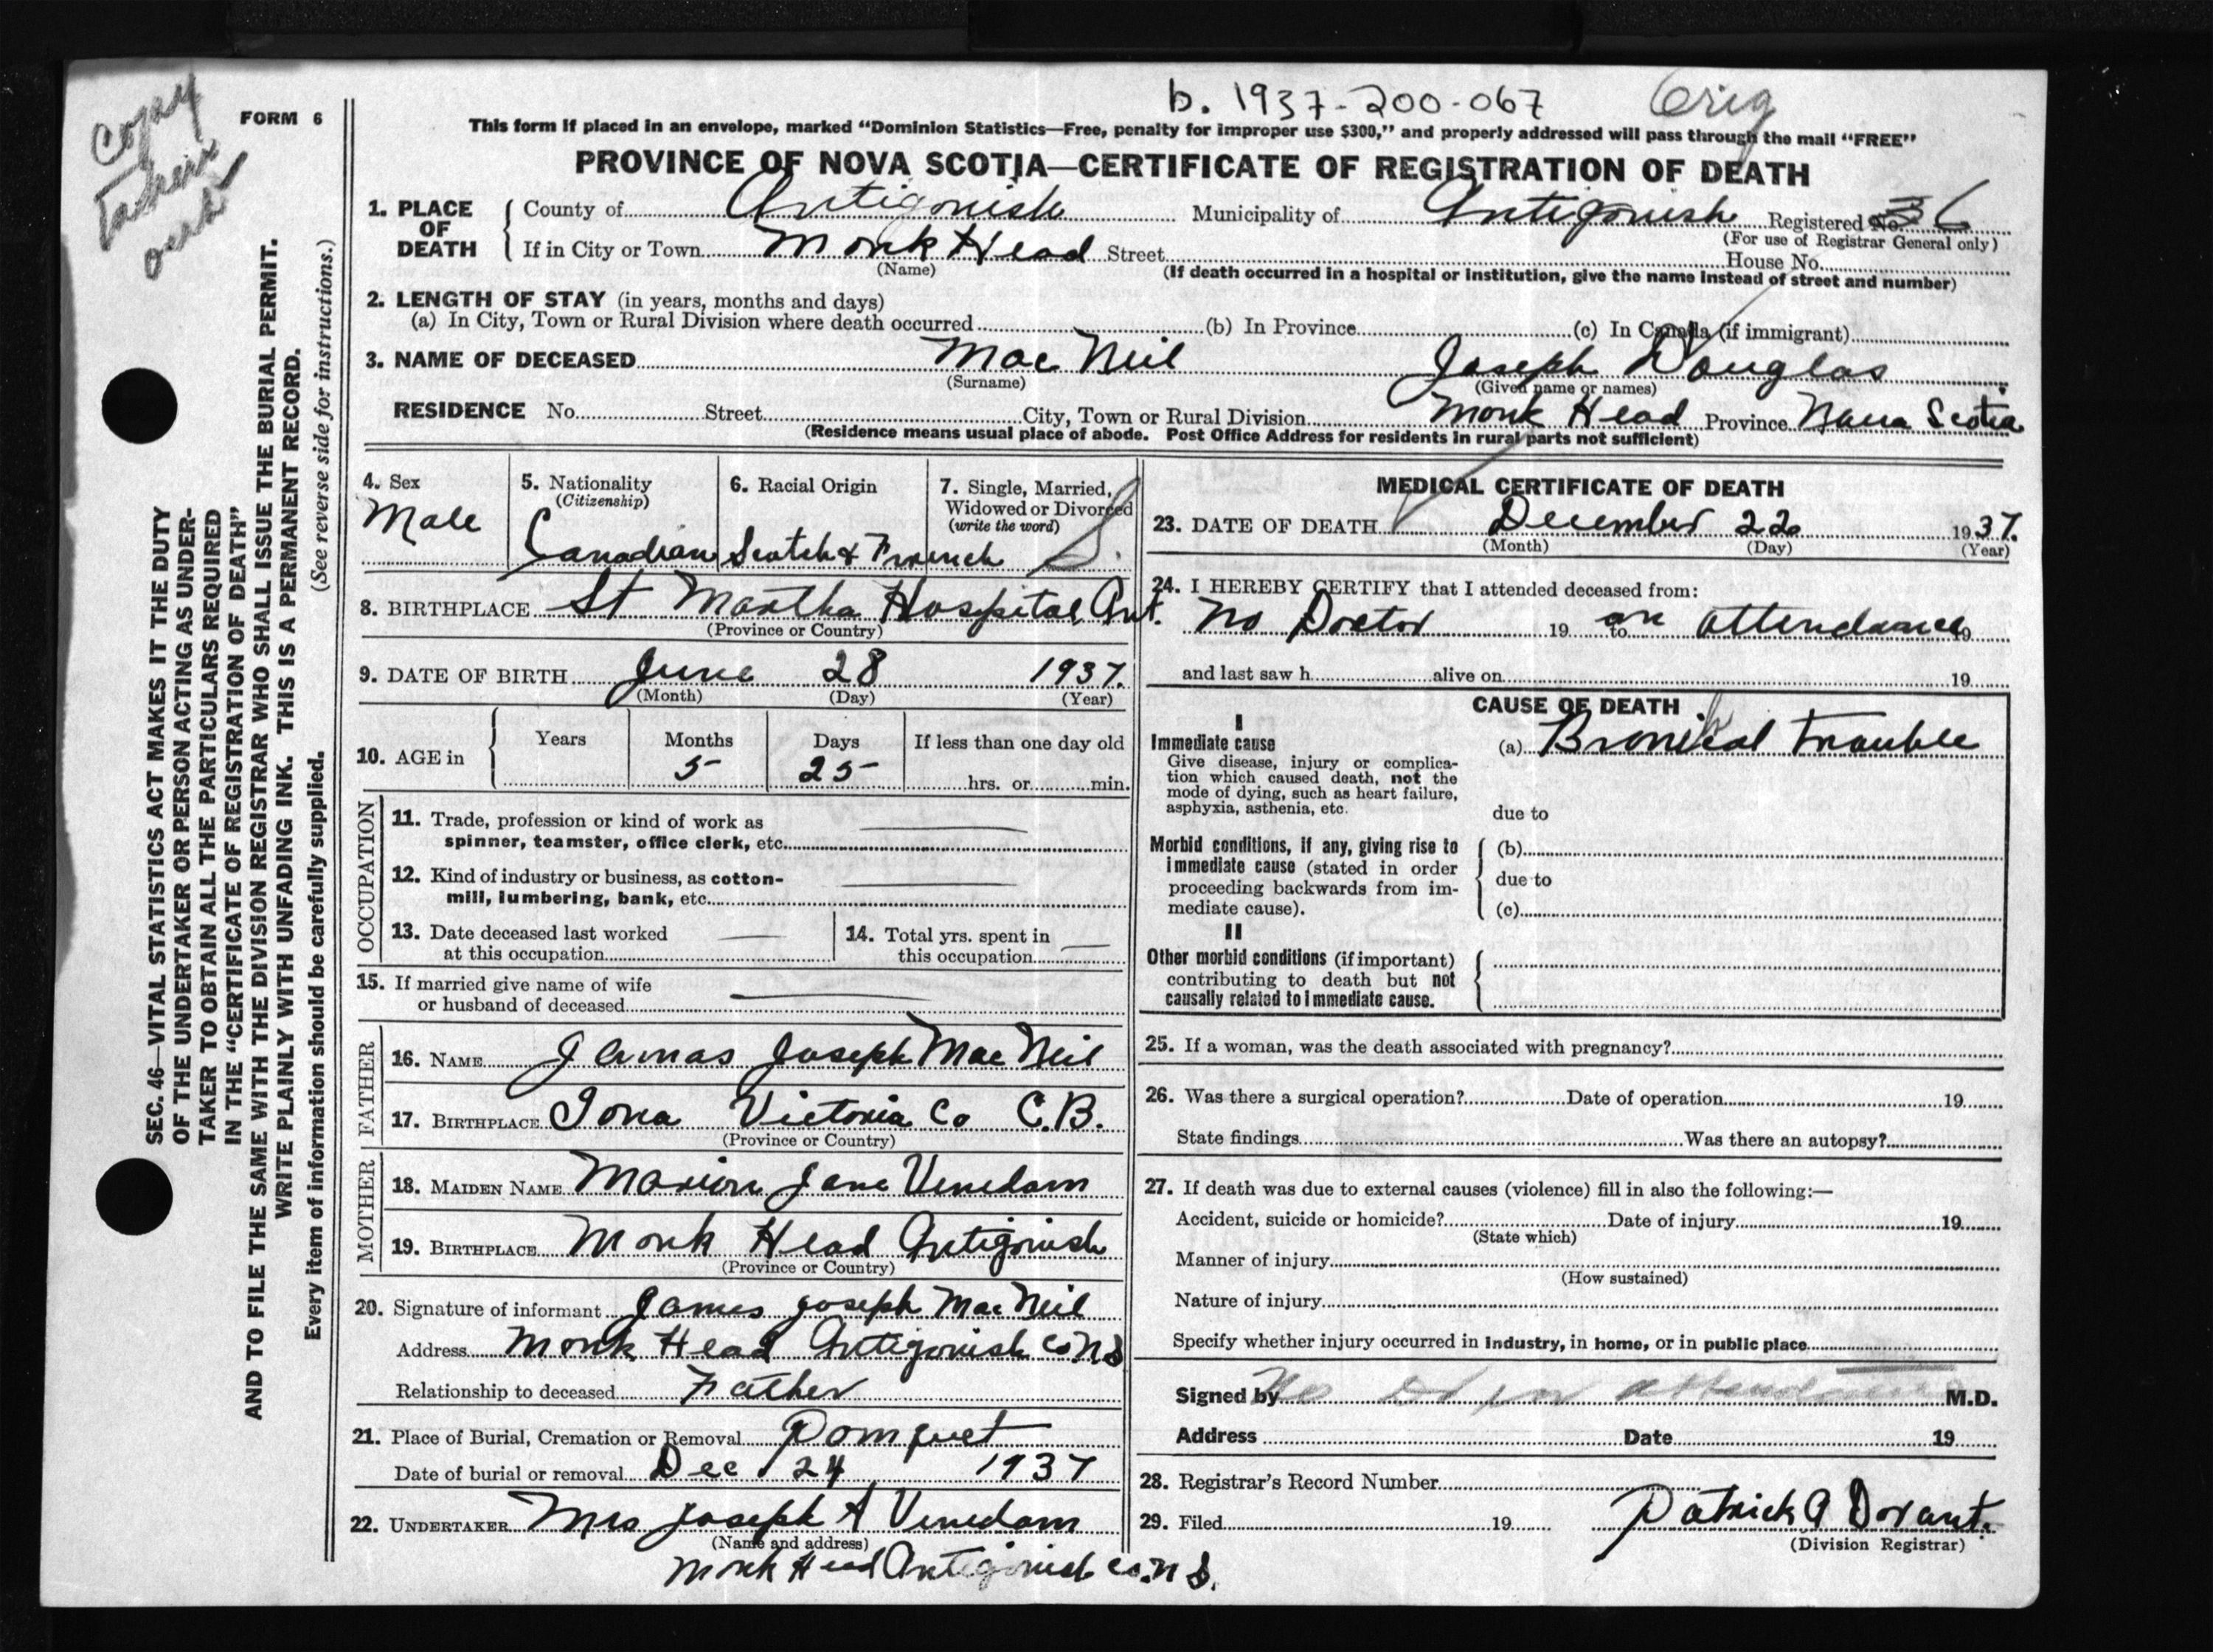 b. 1937-200-067 Orig
Copy
FORM 6
This form if placed in an envelope, marked “Dominion Statistics—Free, penalty for improper use $300,” and properly addressed will pass through the mail “FREE”
PROVINCE OF NOVA SCOTIA—CERTIFICATE OF REGISTRATION OF DEATH
1. PLACE OF DEATH
County of Antigonish Municipality of Antigonish Registered No. 36
(For use of Registrar General only)
If in City or Town Monk Head Street House No.
(Name)
(If death occurred in a hospital or institution, give the name instead of street and number)
2. LENGTH OF STAY (in years, months and days)
(a) In City, Town or Rural Division where death occurred (b) In Province (c) In Canada (if immigrant)
3. NAME OF DECEASED Mac Neil Joseph Douglas
(Surname) (Given name or names)
RESIDENCE No. Street City, Town or Rural Division Monk Head Province Nova Scotia
(Residence means usual place of abode. Post Office Address for residents in rural parts not sufficient)
SEC. 46—VITAL STATISTICS ACT MAKES IT THE DUTY
OF THE UNDERTAKER OR PERSON ACTING AS UNDER-
TAKER TO OBTAIN ALL THE PARTICULARS REQUIRED
IN THE “CERTIFICATE OF REGISTRATION OF DEATH”
AND TO FILE THE SAME WITH THE DIVISION REGISTRAR WHO SHALL ISSUE THE BURIAL PERMIT.
WRITE PLAINLY WITH UNFADING INK. THIS IS A PERMANENT RECORD.
Every item of information should be carefully supplied. (See reverse side for instructions.)
4. Sex
Male
5. Nationality
(Citizenship)
Canadian
6. Racial Origin
Scotch & French
7. Single, Married,
Widowed or Divorced
(write the word)
S.
8. BIRTHPLACE St Martha Hospital Ant.
(Province or Country)
9. DATE OF BIRTH June 28 1937.
(Month) (Day) (Year)
10. AGE in Years Months Days If less than one day old
5 25 hrs. or min.
OCCUPATION
11. Trade, profession or kind of work as
spinner, teamster, office clerk, etc.
12. Kind of industry or business, as cotton-
mill, lumbering, bank, etc.
13. Date deceased last worked
at this occupation
14. Total yrs. spent in
this occupation
15. If married give name of wife
or husband of deceased
FATHER
16. NAME James Joseph Mac Neil
17. BIRTHPLACE Iona Victoria Co C.B.
(Province or Country)
MOTHER
18. MAIDEN NAME Marion Jane Venedam
19. BIRTHPLACE Monk Head Antigonish
(Province or Country)
20. Signature of informant James Joseph Mac Neil
Address Monk Head Antigonish Co N S
Relationship to deceased Father
21. Place of Burial, Cremation or Removal Pomquet
Date of burial or removal Dec 24 1937
22. UNDERTAKER Mrs Joseph A Venedam
(Name and address)
Monk Head Antigonish Co. N S.
MEDICAL CERTIFICATE OF DEATH
23. DATE OF DEATH December 22 1937.
(Month) (Day) (Year)
24. I HEREBY CERTIFY that I attended deceased from:
No Doctor 19 to on attendance 19
and last saw h alive on 19
CAUSE OF DEATH
I
Immediate cause
Give disease, injury or complica-
tion which caused death, not the
mode of dying, such as heart failure,
asphyxia, asthenia, etc.
(a) Bronical trouble
due to
Morbid conditions, if any, giving rise to
immediate cause (stated in order
proceeding backwards from im-
mediate cause).
(b)
due to
(c)
II
Other morbid conditions (if important)
contributing to death but not
causally related to immediate cause.
25. If a woman, was the death associated with pregnancy?
26. Was there a surgical operation? Date of operation 19
State findings Was there an autopsy?
27. If death was due to external causes (violence) fill in also the following:—
Accident, suicide or homicide? Date of injury 19
(State which)
Manner of injury
(How sustained)
Nature of injury
Specify whether injury occurred in industry, in home, or in public place
Signed by No Dr in attendance M.D.
Address Date 19
28. Registrar's Record Number
29. Filed 19 Patrick A Dorant.
(Division Registrar)